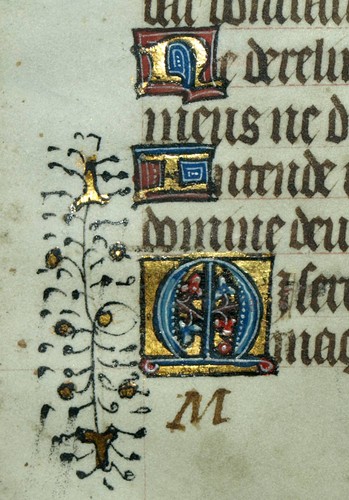 Ne dereli
meus ne d
Intende
domine deu
Misere
mag
M